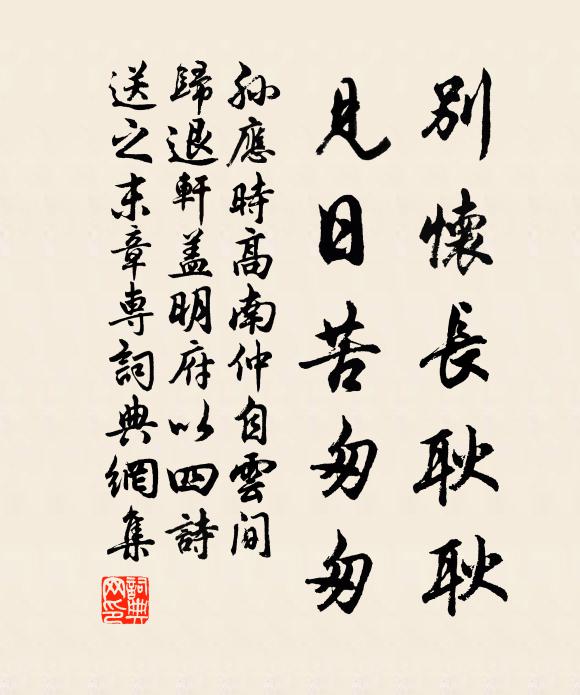 別懷長耿耿
見日苦匆匆
孫應時高南仲自雲間
歸退軒蓋明府以四詩
送之末章專詞典網集
詞典
网印